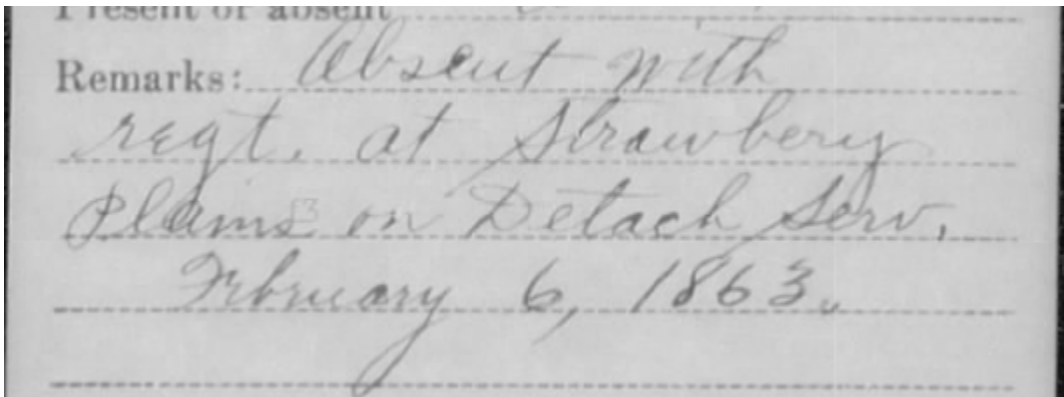 Present or absent
Remarks: Absent with
regt. at Strawbery
Plains on Detach Serv.
February 6, 1863.